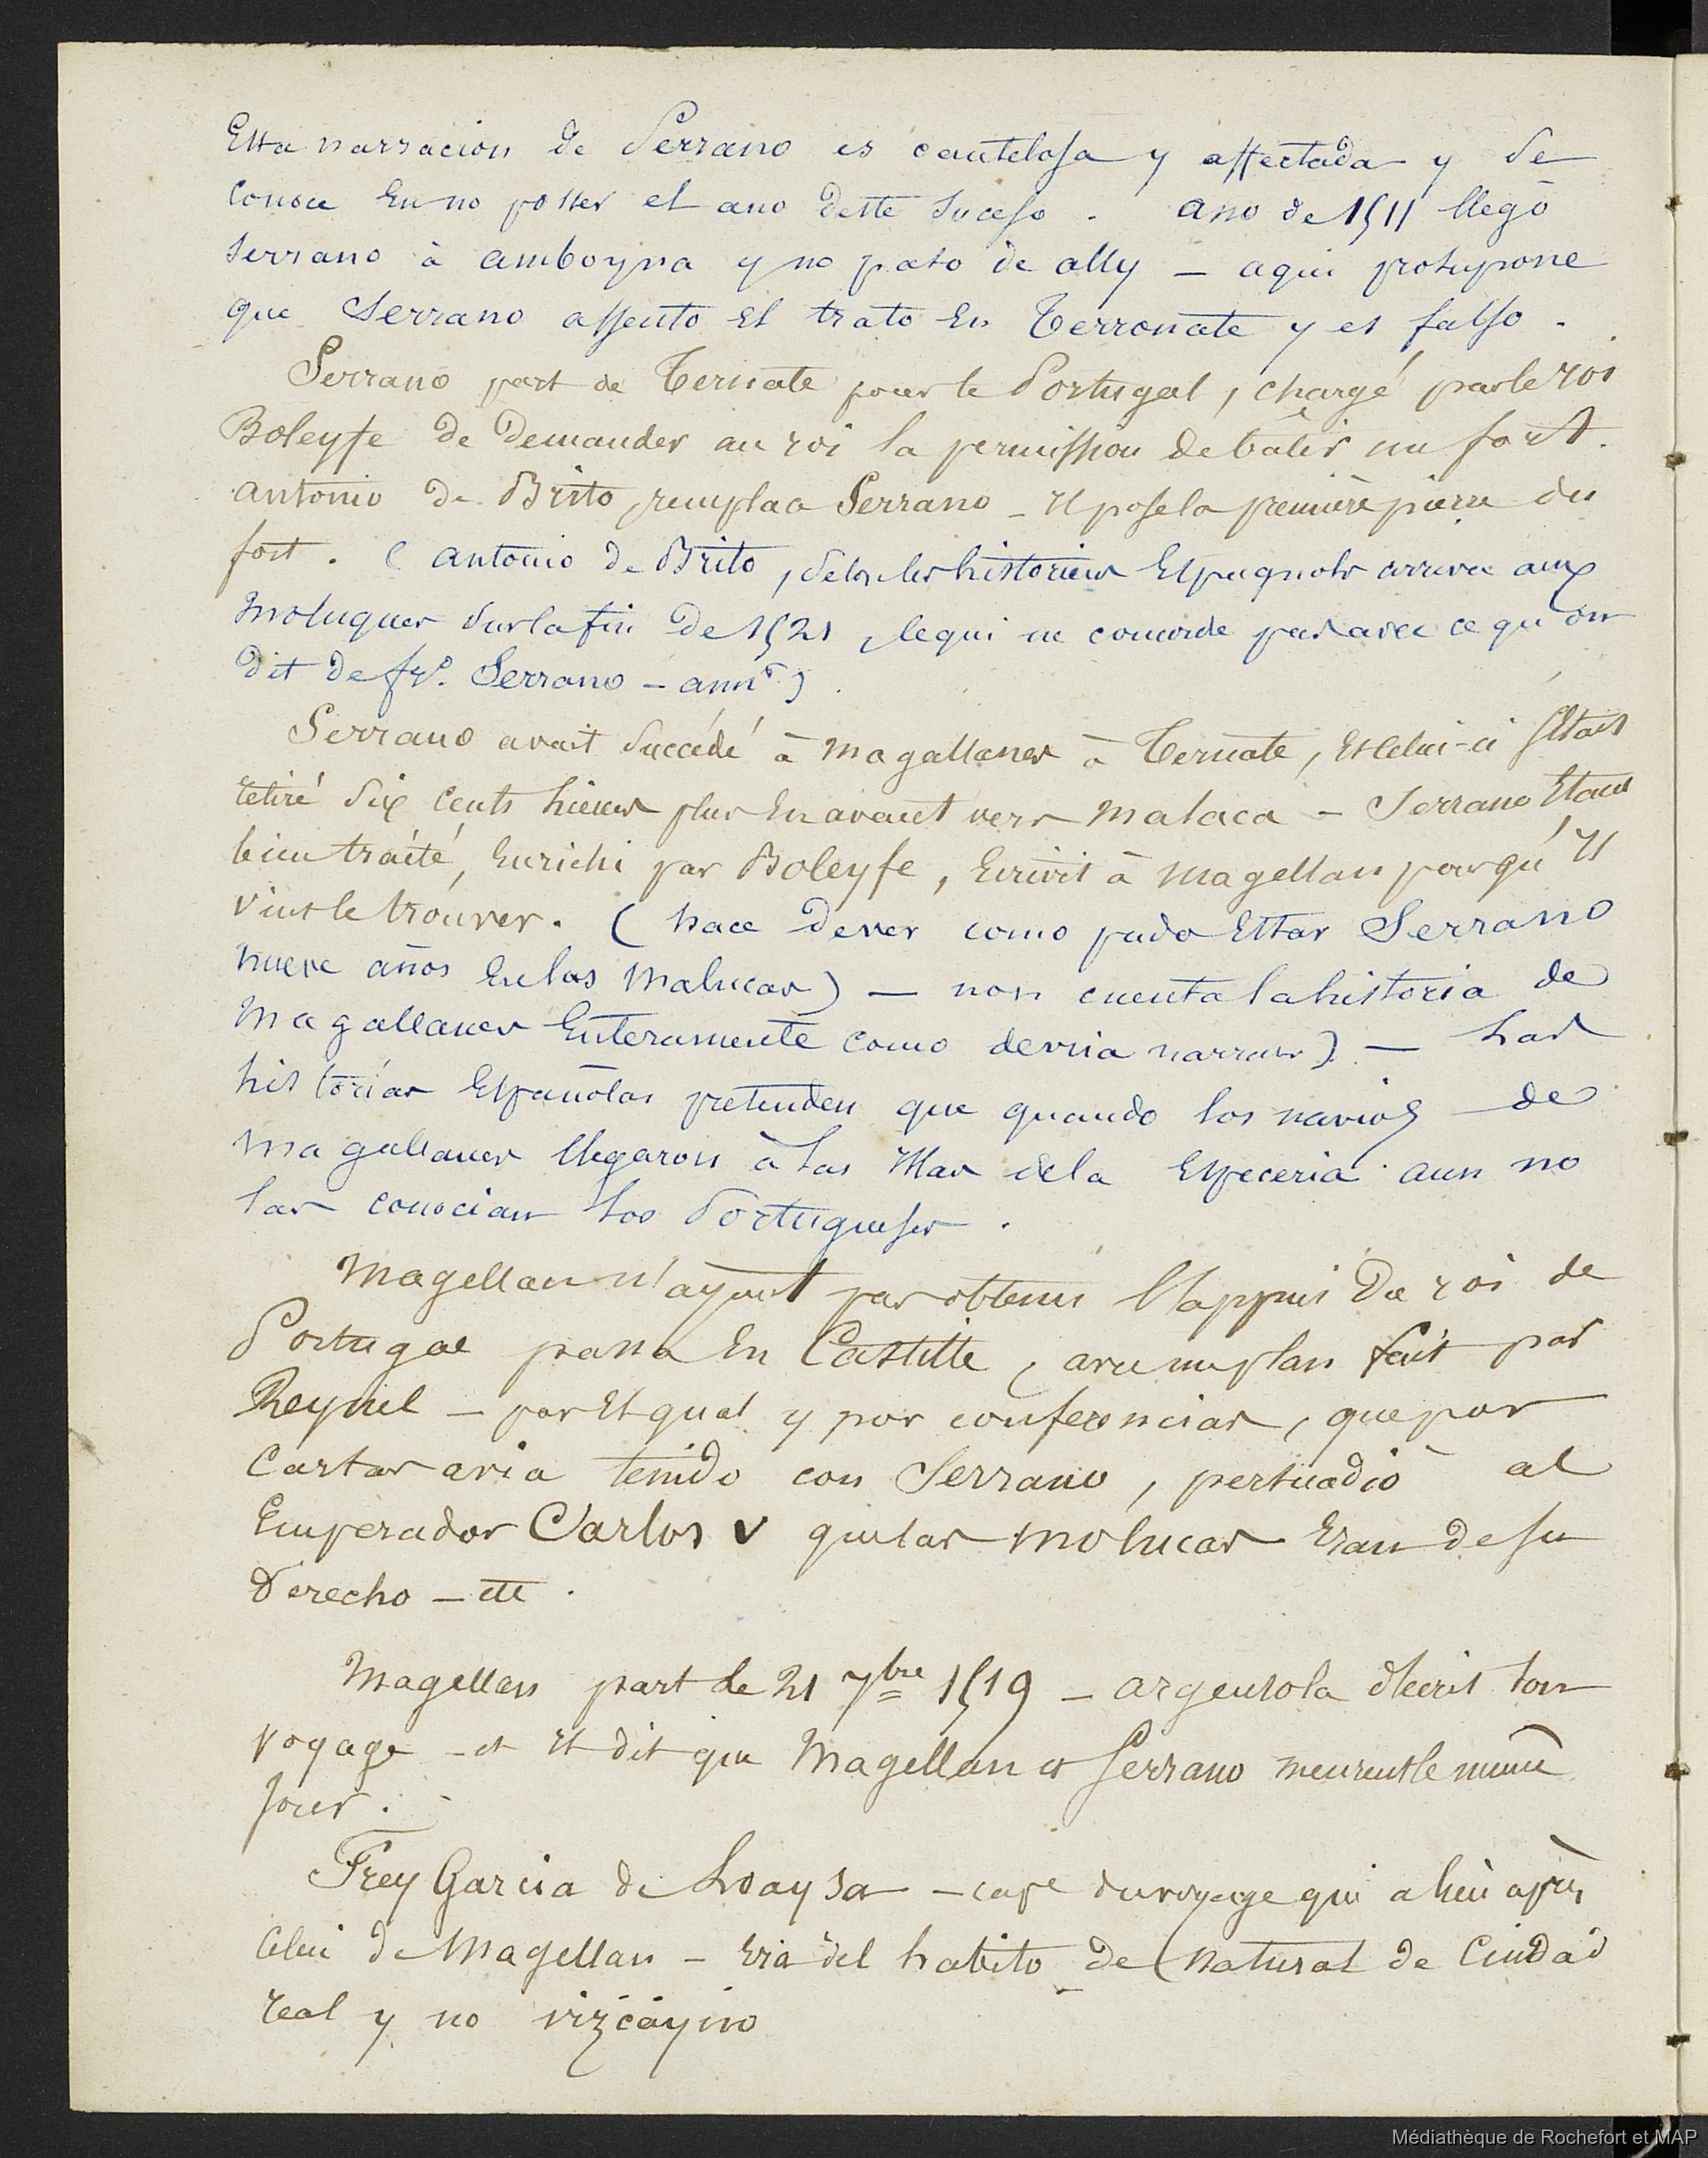 Esta narracion de Serrano es cautelosa y affectada y se
conoce En no posser el ano deste Suceso . Ano de 1511 llegó
Serrano à amboyna y no paso de ally — aqui prosupone
que Serrano assento El trato En Terronate y es falso .
Serrano part de Ternate pour le Portugal, chargé par le roi
Boleyfe de Demander au roi la permission de batir un fort.
antonio de Brito remplaca Serrano — Il pose la première pierre du
fort . ( antonio de Brito, selon les historiens Espagnols arriva aux
Moluques sur la fin de 1521, ce qui ne concorde pas avec ce qu'on
dit de fr.º Serrano — annº)
Serrano avait succédé à Magallanes à Ternate, Et celui-ci s'Etait
retiré Six cents lieues plus En avant vers Malaca — Serrano Etant
bien traité, Enrichi par Boleyfe, Ecrivit à Magellan pour qu'Il
vint le trouver. ( hace de ver como pudo Estar Serrano
nueve años En las Malucas) — non cuenta la historia de
Magallanes Enteramente como devria narrar) — Las
historias Españolas pretenden que quando los navios de
Magallanes llegaron à las Illas de la Especeria aun no
las conocian los Portugueses .
Magellan n'ayant pas obtenu l'appui du roi de
Portugal passa En Castille, avec un plan fait par
Reynel — por El qual y por conferencias, que por
Cartas avia tenido con Serrano, persuadiò al
Emperador Carlos V que las Molucas Eran de su
Derecho — etc .
Magellan part le 21 7bre 1519 — argensola décrit son
voyage — et Il dit que Magellan et Serrano meurent le même
jour .
Frey Garcia de Loaysa — cape du voyage qui a lieu après
Celui de Magellan — Era del habito de (natural de Ciudad
real y no vizcayno